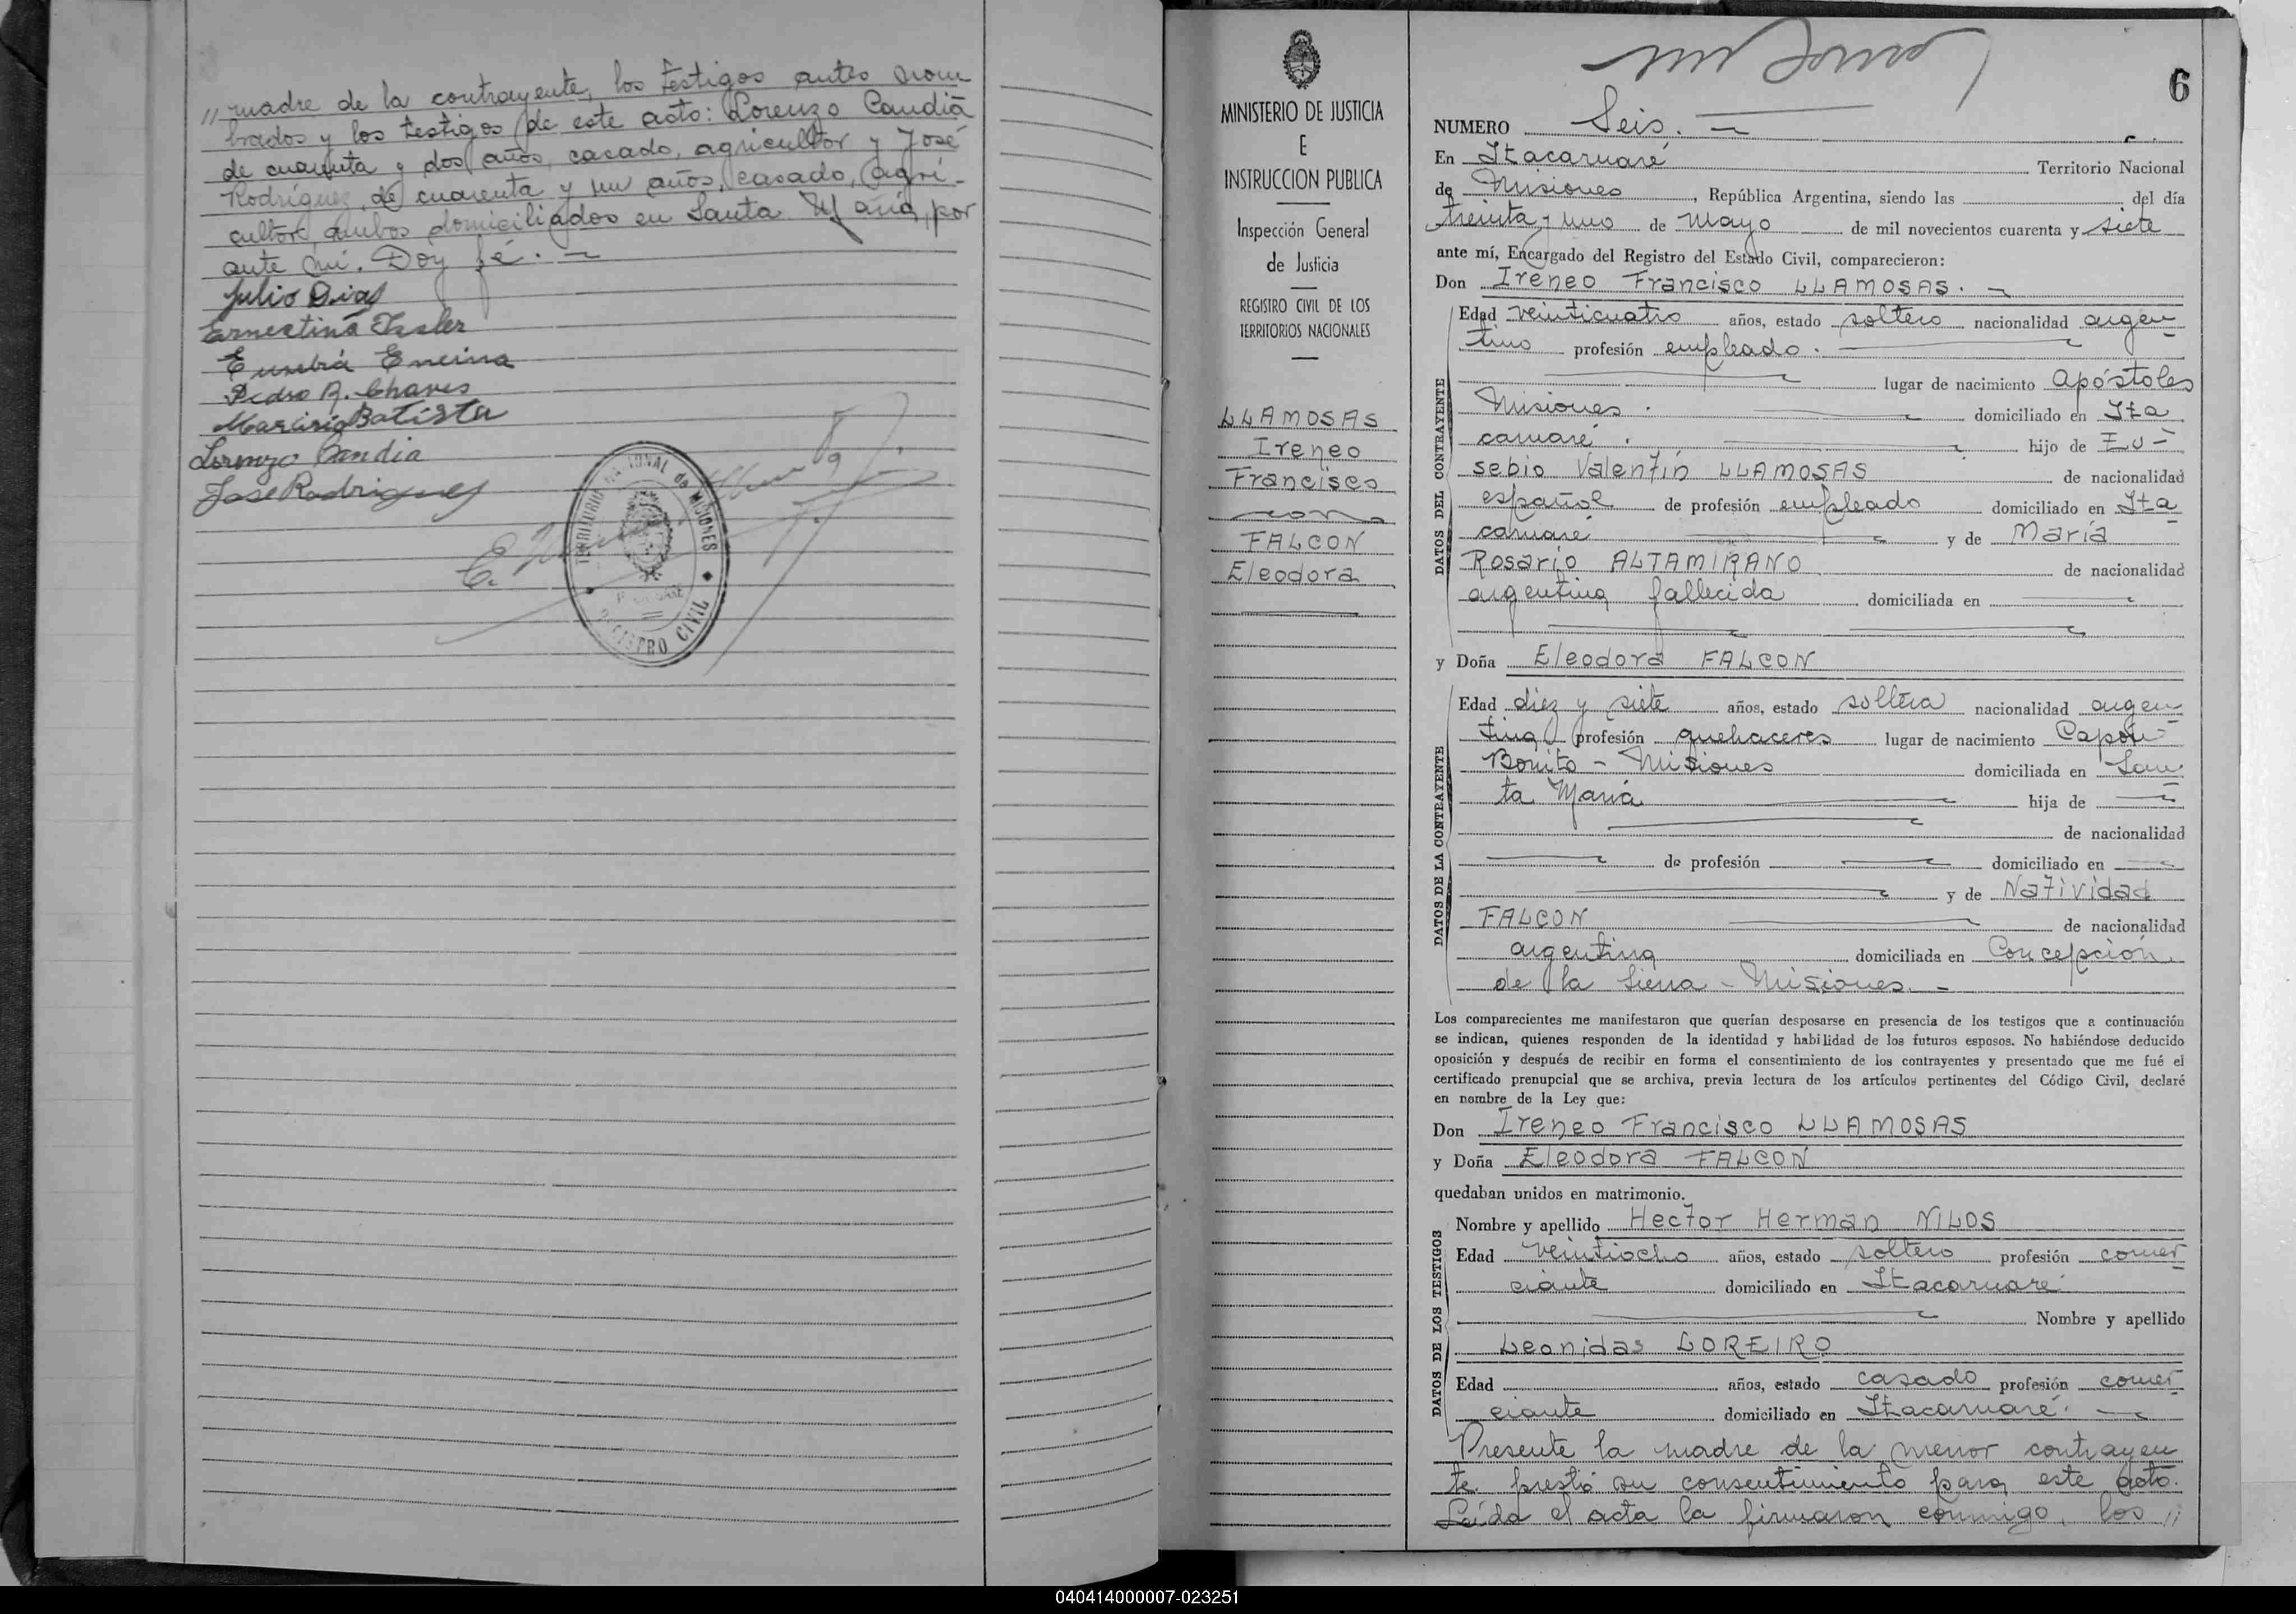 // madre de la contrayente, los testigos antes nom
brados y los testigos de este acto: Lorenzo Candia
de cuarenta y dos años, casado, agricultor y José
Rodríguez, de cuarenta y un años, casado, agri-
cultor, ambos domiciliados en Santa María, por
ante mí. Doy fé. -
Julio Dias
Ernestina
Eusebia Encina
Pedro A. Chaves
Batista
Lorenzo Candia
Jose Rodriguez
TERRITORIO NACIONAL de MISIONES
REGISTRO CIVIL
MINISTERIO DE JUSTICIA
E
INSTRUCCION PUBLICA
Inspección General
de Justicia
REGISTRO CIVIL DE LOS
TERRITORIOS NACIONALES
LLAMOSAS
Ireneo
Francisco
con
FALCON
Eleodora
6
NUMERO Seis. -
En Itacaruaré Territorio Nacional
de Misiones, República Argentina, siendo las del día
treinta y uno de mayo de mil novecientos cuarenta y siete
ante mí, Encargado del Registro del Estado Civil, comparecieron:
Don Ireneo Francisco LLAMOSAS. -
DATOS DEL CONTRAYENTE
Edad veinticuatro años, estado soltero nacionalidad argen
tino profesión empleado.
lugar de nacimiento Apóstoles
Misiones. domiciliado en Ita
caruaré. hijo de Eu-
sebio Valentín LLAMOSAS de nacionalidad
español de profesión empleado domiciliado en Ita
caruaré y de María
Rosario ALTAMIRANO de nacionalidad
argentina fallecida domiciliada en
y Doña Eleodora FALCON
DATOS DE LA CONTRAYENTE
Edad diez y siete años, estado soltera nacionalidad argen
tina profesión quehaceres lugar de nacimiento Capón
Bonito - Misiones domiciliada en San
ta María hija de
de nacionalidad
de profesión domiciliado en
y de Natividad
FALCON de nacionalidad
argentina domiciliada en Concepción
de la Sierra - Misiones. -
Los comparecientes me manifestaron que querían desposarse en presencia de los testigos que a continuación
se indican, quienes responden de la identidad y habilidad de los futuros esposos. No habiéndose deducido
oposición y después de recibir en forma el consentimiento de los contrayentes y presentado que me fué el
certificado prenupcial que se archiva, previa lectura de los artículos pertinentes del Código Civil, declaré
en nombre de la Ley que:
Don Ireneo Francisco LLAMOSAS
y Doña Eleodora FALCON
quedaban unidos en matrimonio.
DATOS DE LOS TESTIGOS
Nombre y apellido Hector Herman NILOS
Edad veintiocho años, estado soltero profesión comer
ciante domiciliado en Itacaruaré
Nombre y apellido
Leonidas LOREIRO
Edad años, estado casado profesión comer
ciante domiciliado en Itacaruaré.
Presente la madre de la menor contrayen
te prestó su consentimiento para este acto.
Leída el acta la firmaron conmigo, los //
040414000007-023251